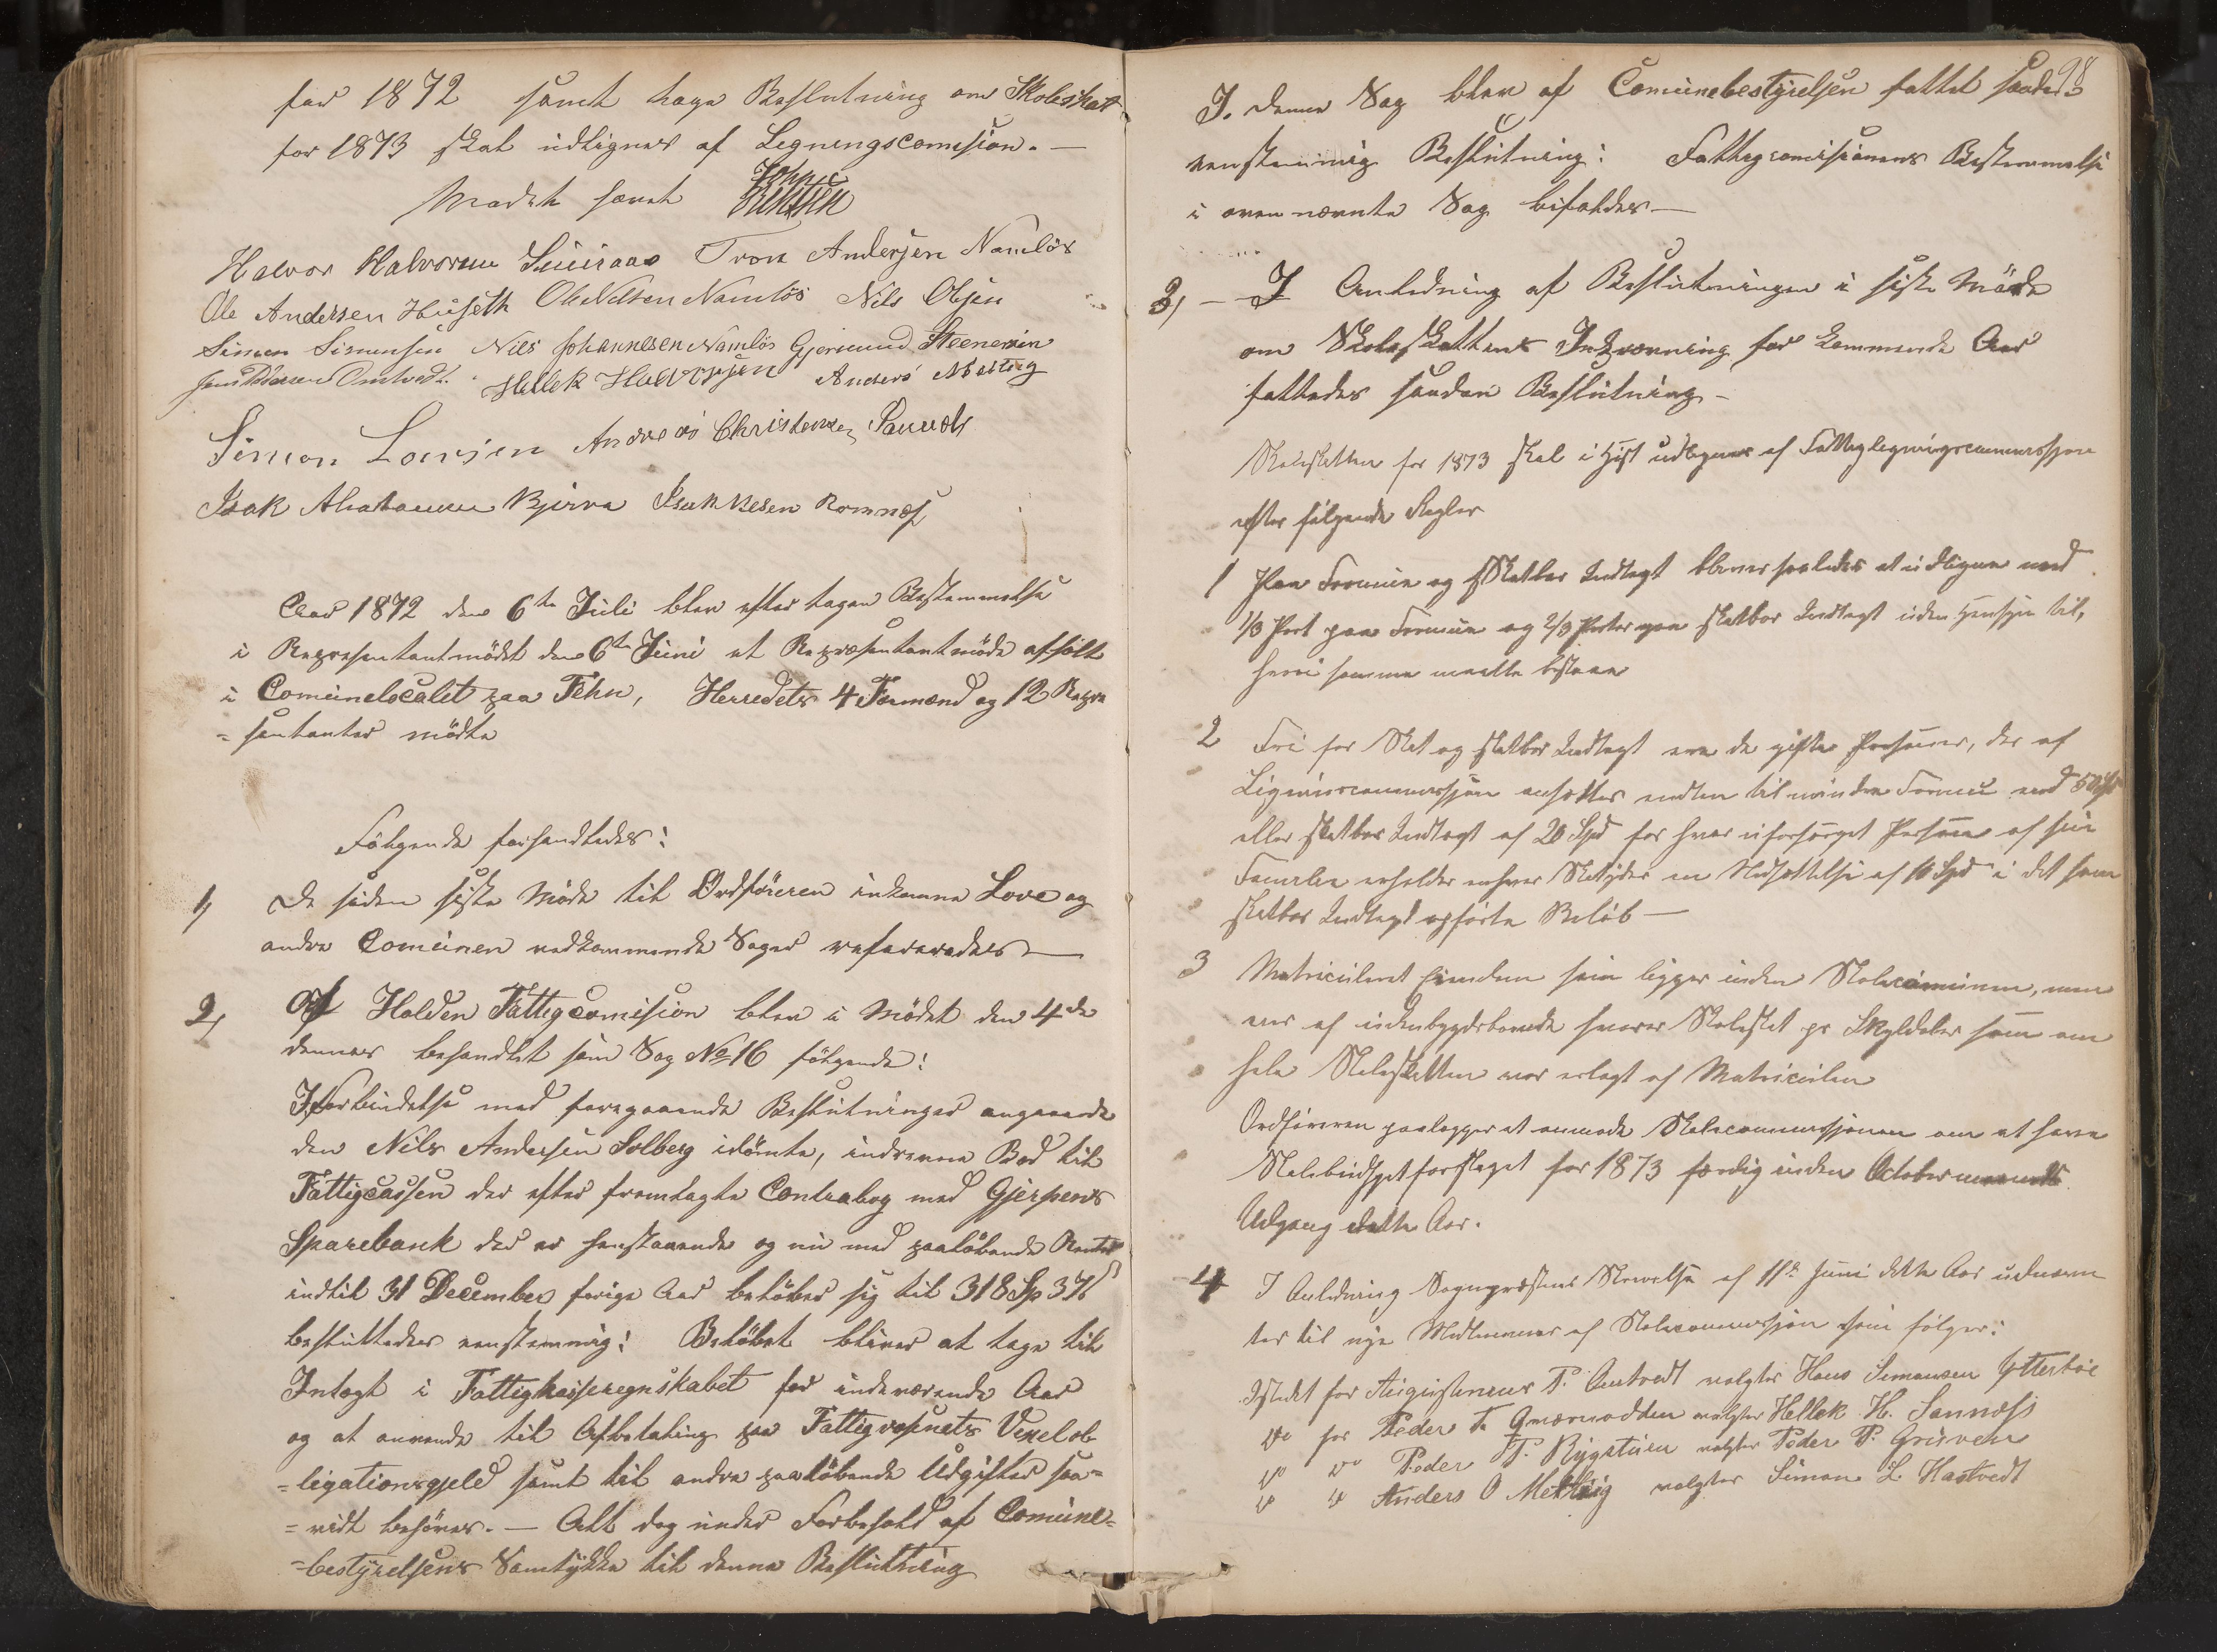 for 1872 samt tage Beslutning om Skoleskat
for 1873 skal udlignes af Legningscomision. —
Mødet hævet
Halvor Halvorsen Tron Andersen Namløs
Ole Andersen Huseth Ole Nilsen Namløs Nils Olsen
Simen Simensen Nils Johannesen Namløs Gjermund Steenerein
Hans Pedersen Omtvedt. Hellek Halvorsen Anders Melteig
Simon Larsen Andreas Christensen
Isak Abrahamsen Bjerva Isak Romnæs
Aar 1872 den 6te Juli blev efter tagen Bestemmelse
i Representantmødet den 6te Juni et Repræsentantmøde afholt
i Comunelocalet paa Fehn, Herredets 4 Formænd og 12 Repræ
= sentanter mødte
Følgende forhandledes:
1, De siden siste Møde til Ordføreren inkomne Love og
andre Comunen vedkommende Sager refereredes —
2, Af Holden Fattigcomision blev i Mødet den 4de
dennes behandlet som Sag No 16 følgende:
I Forbindelse med foregaaende Beslutninger angaaende
den Nils Andersen Solberg idømte, indrevne Bod til
Fattigcassen der efter fremlagte Contrabog med Gjerpens
Sparebank der er henstaaende og nu med paaløbende Renter
indtil 31 December forige Aar beløber sig til 318 Sp 37 s
besluttedes eenstemmig: Beløbet bliver at tage til
Intægt i Fattigkasseregnskabet for indeværende Aar
og at anvende til Afbetaling paa Fattigvesnets Vexelob
= ligationsgjeld samt til andre paaløbende Udgifter saa=
= vidt behøves. — Alt dog under Forbehold af Comune=
= bestyrelsens Samtykke til denne Beslutning
98
I denne Sag blev af Comunebestyrelsen fattet saadan
eenstemmig Beslutning: Fattigcomisionens Bestemmelse
i ovennævnte Sag bifaldes —
3, — I Anledning af Beslutningen i siste Møde
om Skoleskattens Inkrævning for kommende Aar
fattedes saadan Beslutning –
Skoleskatten for 1873 skal i Høst udlignes af Fattiglegningscommissjon
efter følgende Regler
1 Paa Formue og Skatbar Indtægt bliver saaledes at udligne med
1/3 Part paa Formue og 2/3 Parter paa skatbar Indtægt uden Hensyn til,
hvori samme maatte bestaae
2 Fri for Skat og skatbar Indtægt ere de gifte Personer, der af
Ligningscommissjon ansættes enten til mindre Formue end 50 Spd
eller skatbar Indtægt af 20 Spd for hver uforsørget Person af sin
Familie erholder enhver Skatyder en Nedsættelse af 10 Spd i det som
skatbar Indtægt opførte Beløb —
3 Matriculeret Eiendom som ligger inden Skolecomunen, men
eies af udenbygdsboende svarer Skoleskat pr Skylddaler som om
hele Skoleskatten var erlagt af Matriculen
Ordføreren paalægges at anmode Skolecommissjonen om at have
Skolebudgetforslaget for 1873 færdig inden October maaneds
Udgang dette Aar.
4 I Anledning Sognepræstens Skrivelse af 11te Juni dette Aar udnævn
tes til nye Medlemmer af Skolecommissjon som følger:
Istedet for Augustinus P. Omtvedt vælges Hans Simonsen Ytterbøe
do for Peder T. Qværnodden vælges Hellek H. Sannæss
do do Peder T. Rygstuen vælges Peder P. Gruven
do do Anders O Melteig vælges Simon L. Hastvedt